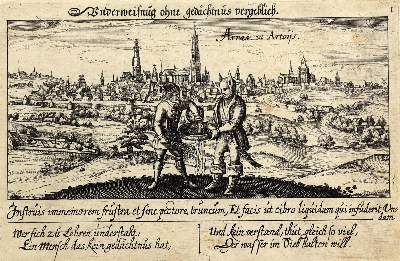 Underweisung ohne gedächtnus vergeblich.
1
Arras in Artois
Instruis immemorem frustra et sine pectore, truncum, Et facis ut cibro liquidam qui infuderit Undam
Wer sich zu Lehren understeht,
Ein Mensch das kein gedächtnus hat,
Und kein verstand, thut gleich so viel,
Der wasser im Sieb halten will.